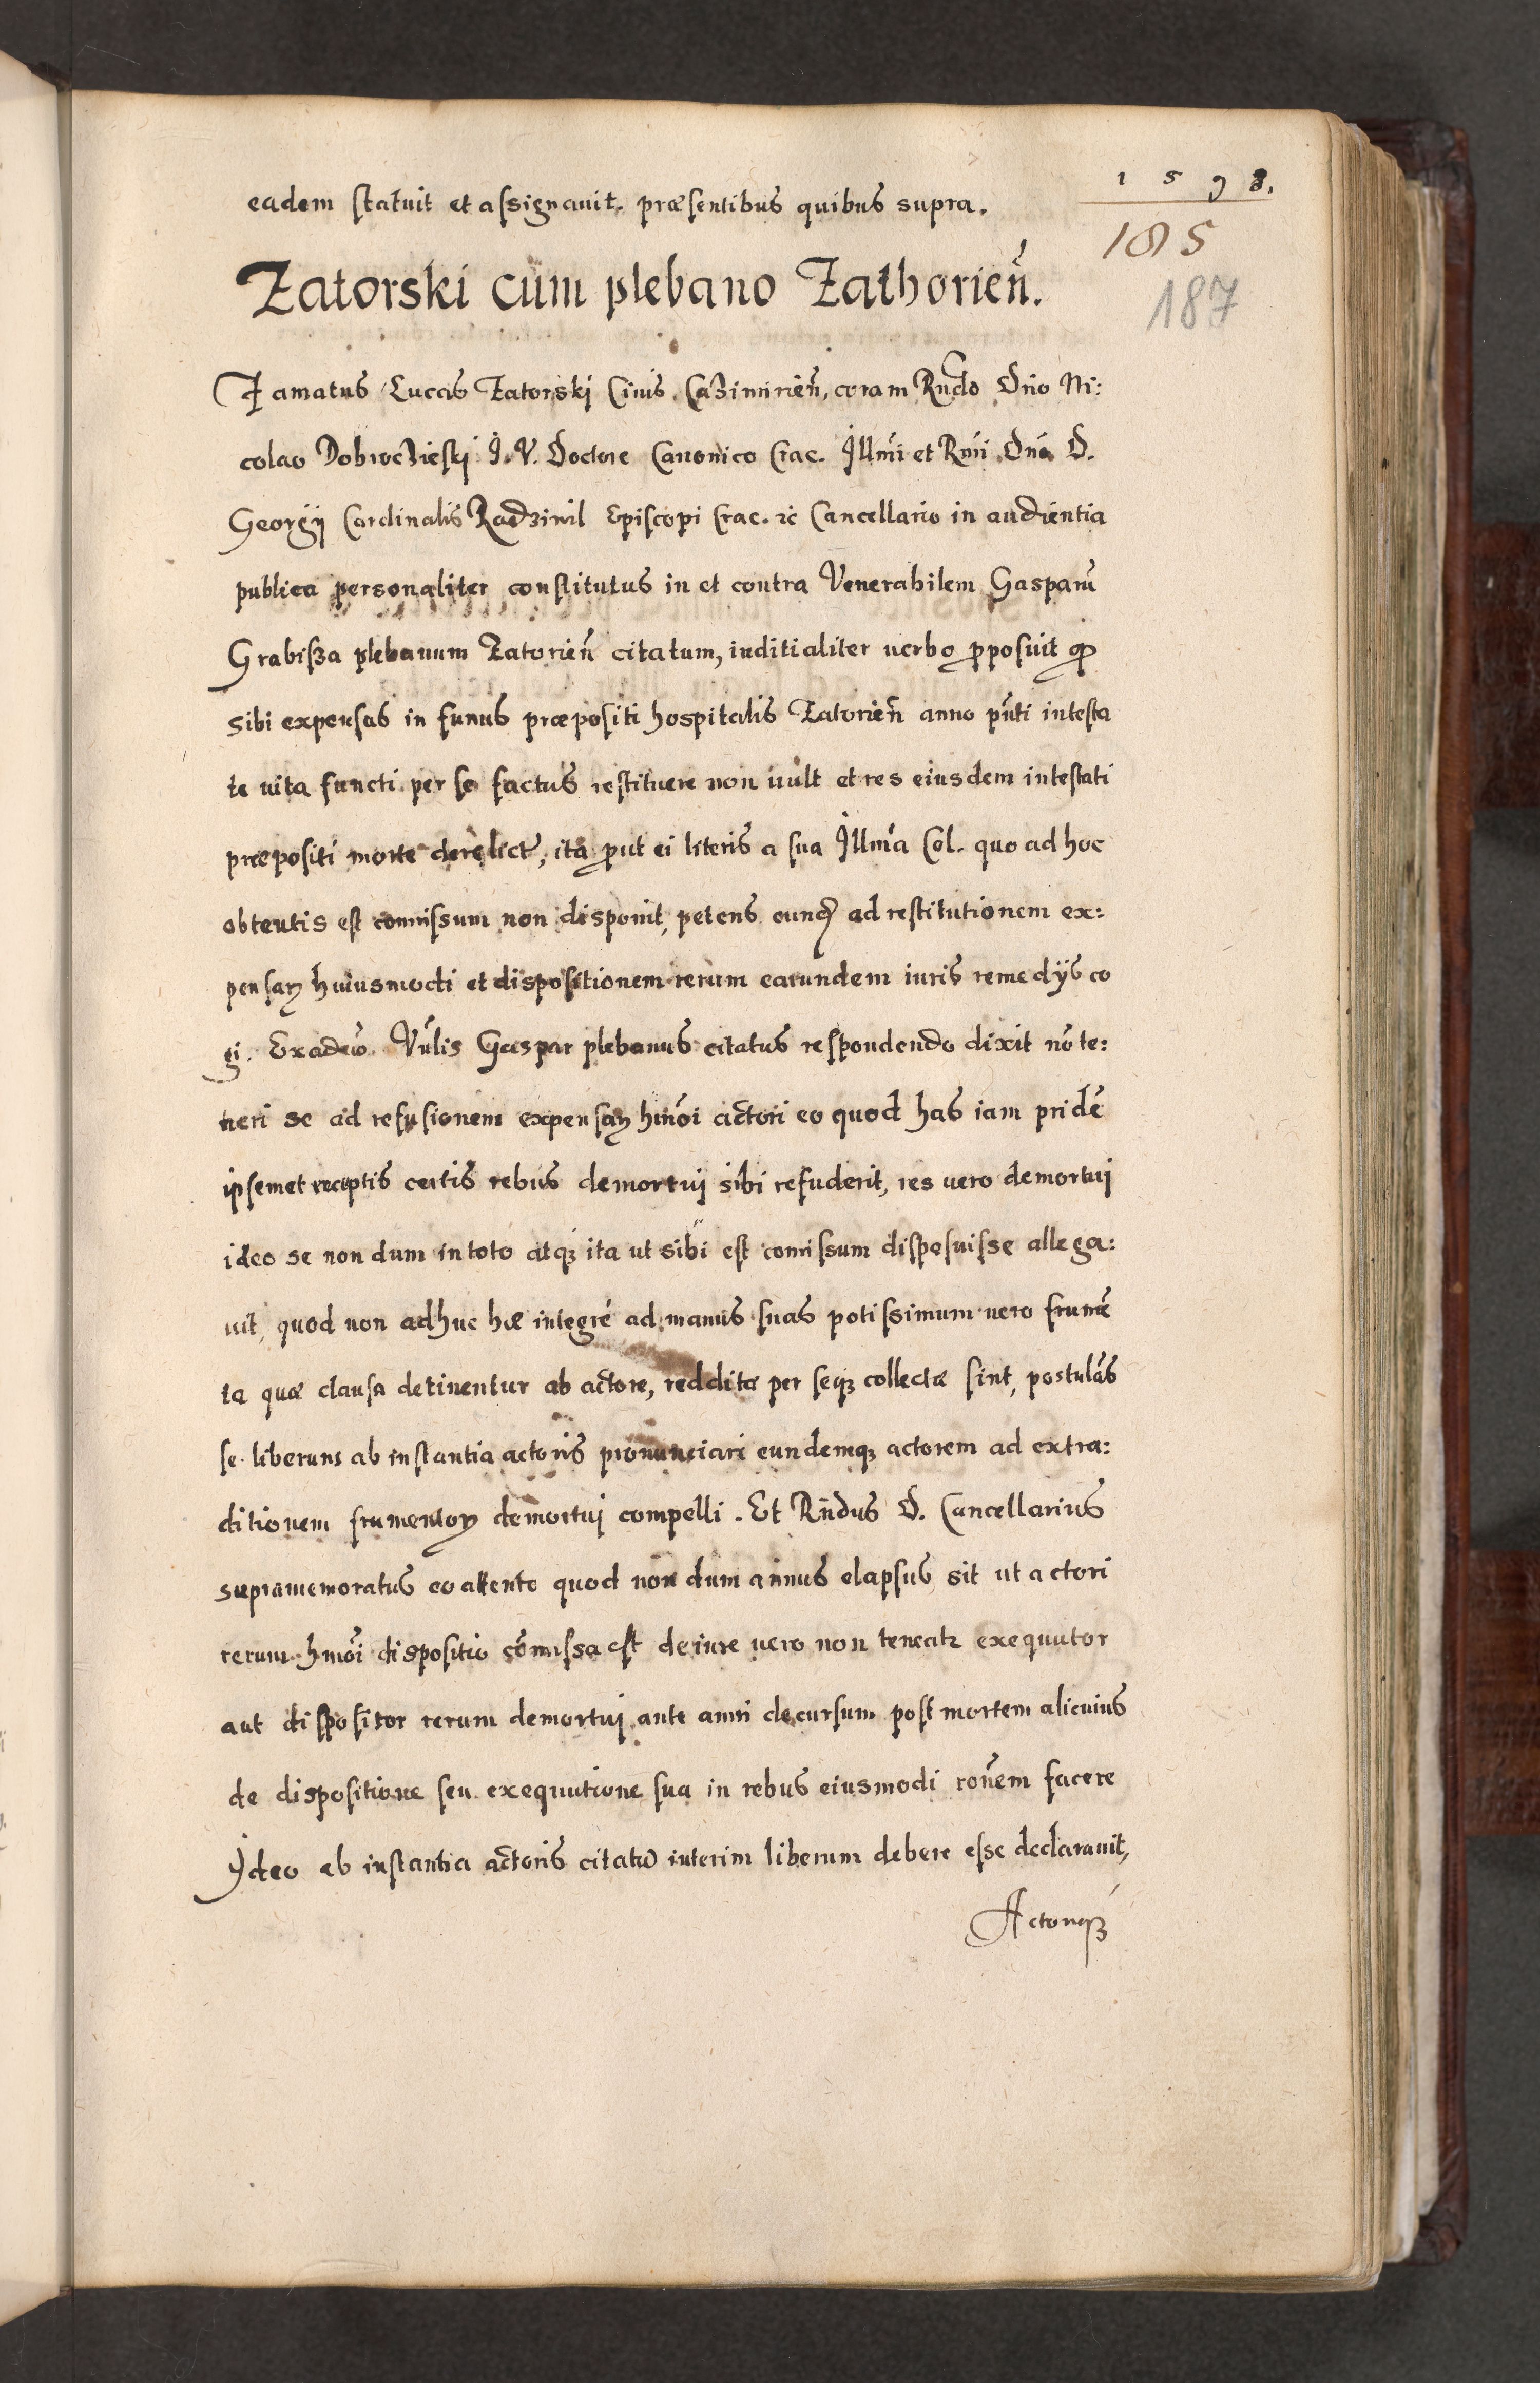 1 5 9 8.
eadem statuit et assignavit. præsentibus quibus supra.
185
Zatorski cum plebano Zathorień.
187
Famatus Lucas Zatorskj Civis Cazimirień, coram Rndo Dno Ni:
colao Dobroczieskj J. V. Doctore Canonico Crac. Illmi et Rmi Dnō D.
Georgij Cardinalis Radziwil Episcopi Crac. &c Cancellario in audientia
publica personaliter constitutus in et contra Venerabilem Gasparū
Grabisza plebanum Zatorień citatum, iuditialiter verbo proposuit quod
sibi expensas in funus præpositi hospitalis Zatorień anno pn̄ti intesta
te vita functi per se factas restituere non vult et res eiusdem intestati
præpositi morte derelictas, ita prout ei literis a sua Illmā Cel. quo ad hoc
obtentis est commissum non disponit, petens eundem ad restitutionem ex:
pensarum huiusmodi et dispositionem rerum earundem iuris remedijs co
gi. Exadverso Vnlis Gaspar plebanus citatus respondendo dixit nō te:
neri se ad refusionem expensarum hmōi actori eo quod has iam pridē
ipsemet receptis certis rebus demortuj sibi refuderit, res vero demortuj
ideo se non dum in toto atq; ita ut sibi est comissum disposuisse allega:
vit, quod non adhuc hæ integré ad manus suas potissimum vero frumē
ta quæ clausa detinentur ab actore, redditæ per seq; collectæ sint, postulās
se liberum ab instantia actoris pronunciari eundemq; actorem ad extra:
ditionem frumentorum demortuj compelli. Et Rndus D. Cancellarius
supramemoratus eo attento quod non dum annus elapsus sit ut actori
rerum hmōi dispositio cōmissa est de iure vero non teneatr exequutor
aut dispositor rerum demortuj ante anni decursum post mortem alicuius
de dispositione seu exequutione sua in rebus eiusmodi ronem facere
Ideo ab instantia actoris citatum interim liberum debere esse declaravit,
Actoriq;